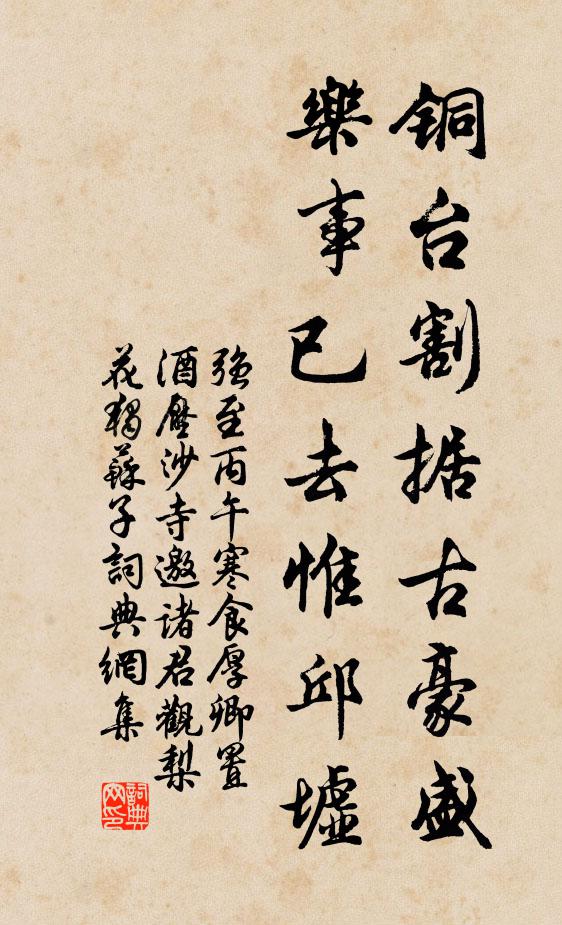 銅台割据古豪盛
樂事已去惟邱墟
強至丙午寒食厚卿置
酒壓沙寺邀諸君觀梨
花獨蘇子詞典網集
詞典
网印